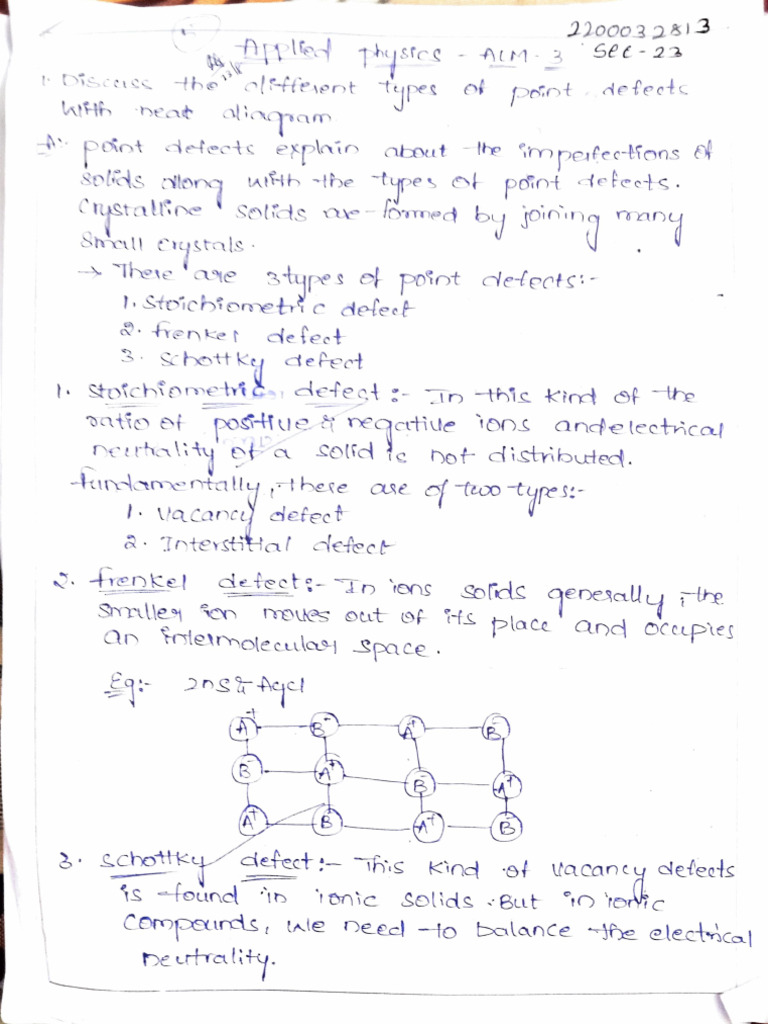 2200032813
Applied physics - ALM - 3 Sec - 23
1. Discuss the different types of point defects
with neat diagram
A:- point defects explain about the imperfections of
solids along with the types of point defects.
Crystalline solids are formed by joining many
small crystals.
→ There are 3 types of point defects:-
1. Stoichiometric defect
2. frenkel defect
3. Schottky defect
1. Stoichiometric defect :- In this kind of the
ratio of positive & negative ions and electrical
neutrality of a solid is not distributed.
fundamentally, these are of two types:-
1. Vacancy defect
2. Interstitial defect
2. frenkel defect:- In ions solids generally, the
smaller ion moves out of its place and occupies
an intermolecular space.
Eg:- ZnS & AgCl
A+ B- A+ B-
B- A+ B- A+
A+ B A+ B-
3. Schottky defect:- This kind of vacancy defects
is found in ionic solids. But in ionic
compounds, we need to balance the electrical
neutrality.